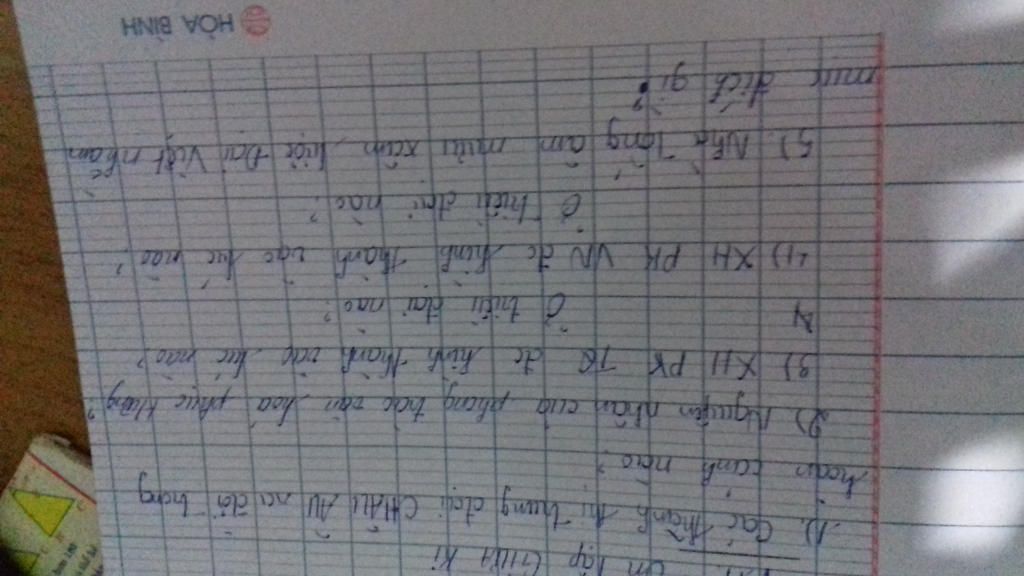 ôn tập GIỮA Kì
1). Các thành thị trung đại CHÂU ÂU ra đời trong
hoàn cảnh nào?
2) Nguyên nhân của phong trào văn hoá phục hưng?
3) XH PK TQ đc hình thành vào lúc nào?
Ở triều đại nào?
4) XH PK VN đc hình thành vào lúc nào?
Ở triều đại nào?
5) Nhà Tống âm mưu xâm lược Đại Việt nhằm
mục đích gì?
HÒA BÌNH